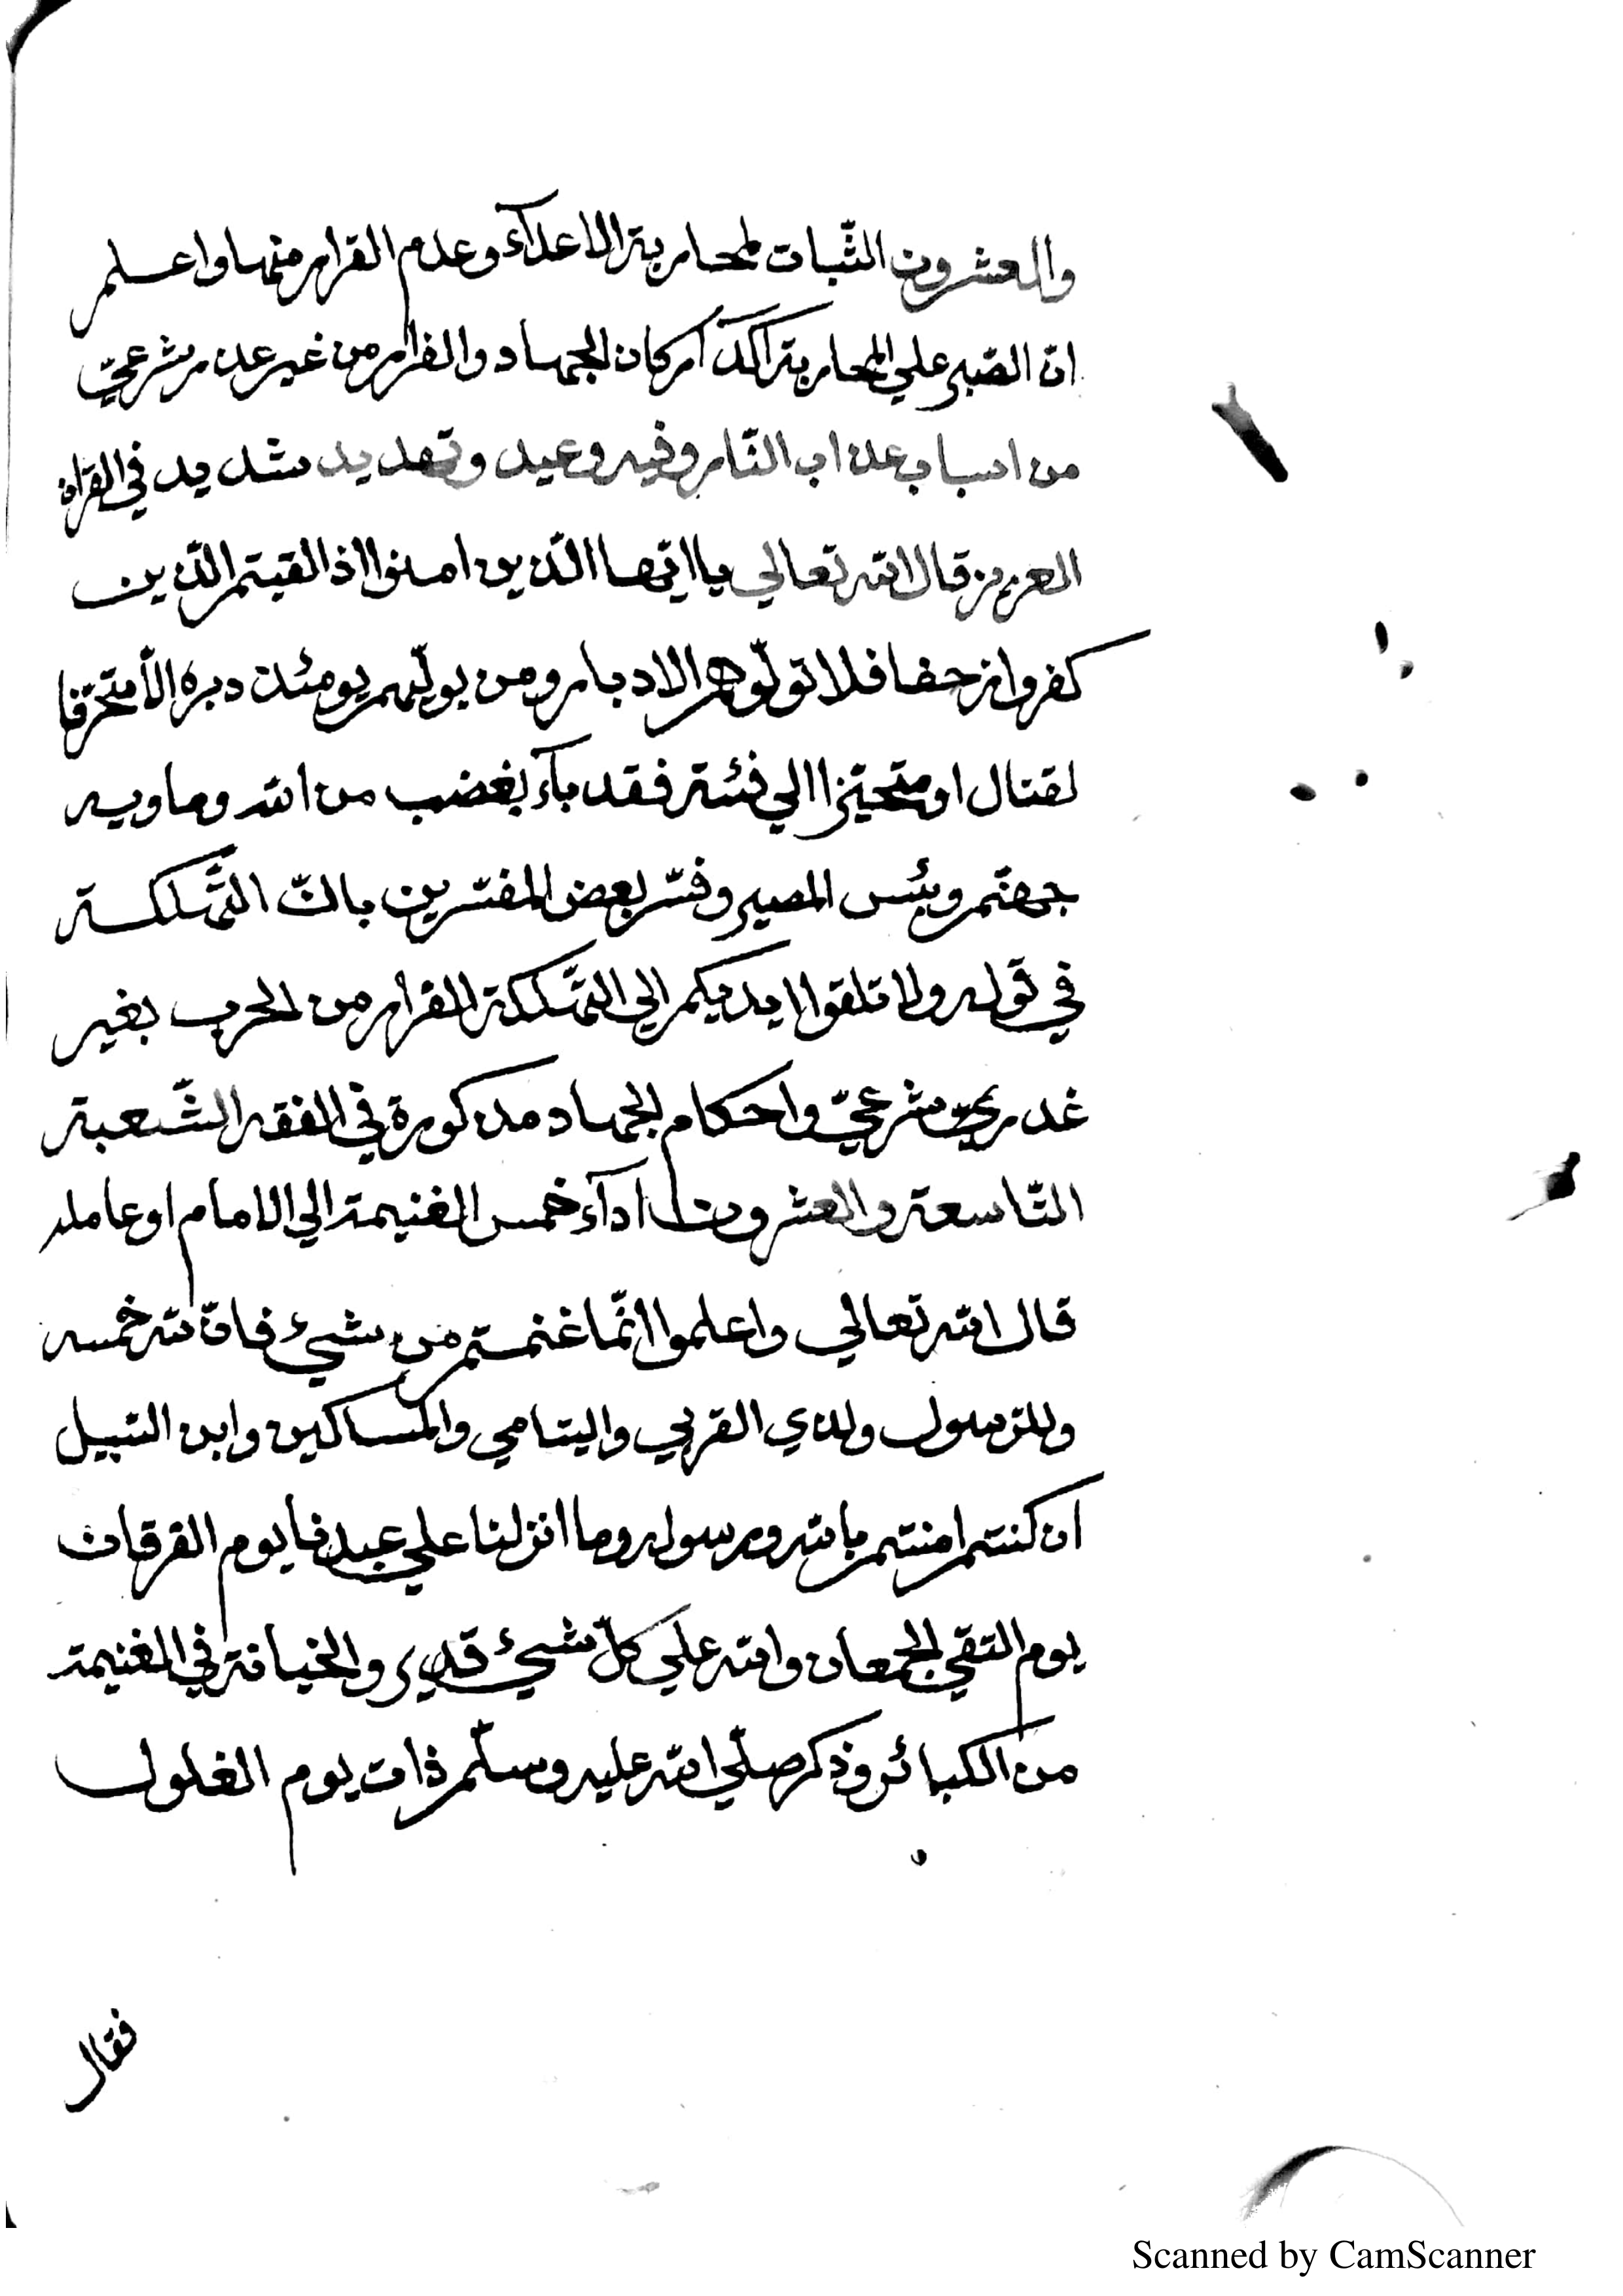 والعشرون الثّبات لمحاربة الاعدآء وعدم القرار منها واعلم
انّ الصّبر علي المحاربة اكدّ اركان الجهاد والفرار من غير عذر شرعيّ
من اسباب عذاب النّار وفيه وعيد وتهديد شديد في القرآن
العزيز قال الله تعالي يا ايّها الّذين امنوا اذا لقيتم الّذين
كفروا زحفا فلا تولّوهم الادبار ومن يولّهم يومئذ دبره الّا متحرّفا
لقتال او متحيّزا الي فئة فقد بآء بغضب من الله وماويه
جهنّم وبئس المصير وفسّر بعض المفسّرين بانّ التّهلكة
في قوله ولا تلقوا ايديكم الي التّهلكة الفرار من الحرب بغير
عذر شرعيّ واحكام الجهاد مذكورة في الفقه الشّعبة
التّاسعة والعشرون ادآء خمس الغنيمة الي الامام او عامله
قال الله تعالي واعلموا انّما غنمتم من شيئ فانّ لله خمسه
وللرّسول ولذي القربي واليتامي والمساكين وابن السّبيل
ان كنتم امنتم بالله ورسوله وما انزلنا علي عبدنا يوم الفرقان
يوم التقي الجمعان والله علي كلّ شيئ قدير والخيانة في الغنيمة
من الكبائر وذكر صلّي الله عليه وسلّم ذات يوم الغلول
فقال
Scanned by CamScanner